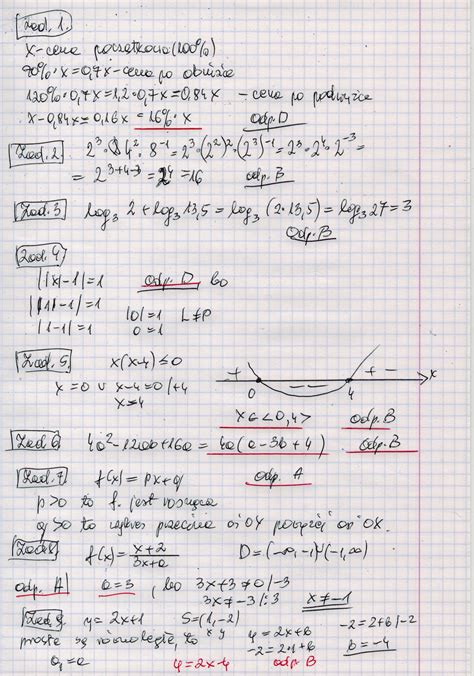 Zad. 1.
x - cena początkowa (100%)
70% · x = 0,7x - cena po obniżce
120% · 0,7x = 1,2 · 0,7x = 0,84x - cena po podwyżce
x - 0,84x = 0,16x = 16% · x odp. D
Zad. 2. 2³ · 4² · 8⁻¹ = 2³ · (2²)² · (2³)⁻¹ = 2³ · 2⁴ · 2⁻³ =
= 2³⁺⁴⁻³ = 2⁴ = 16 odp. B
Zad. 3 log₃ 2 + log₃ 13,5 = log₃ (2 · 13,5) = log₃ 27 = 3
odp. B
Zad. 4
||x|-1| = 1 odp. D, bo
||1|-1| = 1 |0| = 1 L ≠ P
|1-1| = 1 0 = 1
Zad. 5. x(x-4) ≤ 0
x = 0 ∨ x-4 = 0 /+4
x = 4
+ 0 - - 4 + - x
x ∈ <0,4> odp. B
Zad 6 4a² - 12ab + 16a = 4a(a - 3b + 4) odp. B
Zad. 7 f(x) = px + q odp. A
p > 0 to f. jest rosnąca
to wykres przecina oś OY oś OX.
Zad 8 f(x) = x+2 / 3x+a D = (-∞, -1) ∪ (-1, ∞)
odp. A a = 3, bo 3x+3 ≠ 0 /-3
3x ≠ -3 /:3 x ≠ -1
Zad. 9 y = 2x+1 S = (1, -2)
x y
proste są równoległe, to y = 2x+b -2 = 2+b /-2
-2 = 2·1+b b = -4
a₁ = a y = 2x-4 odp. B